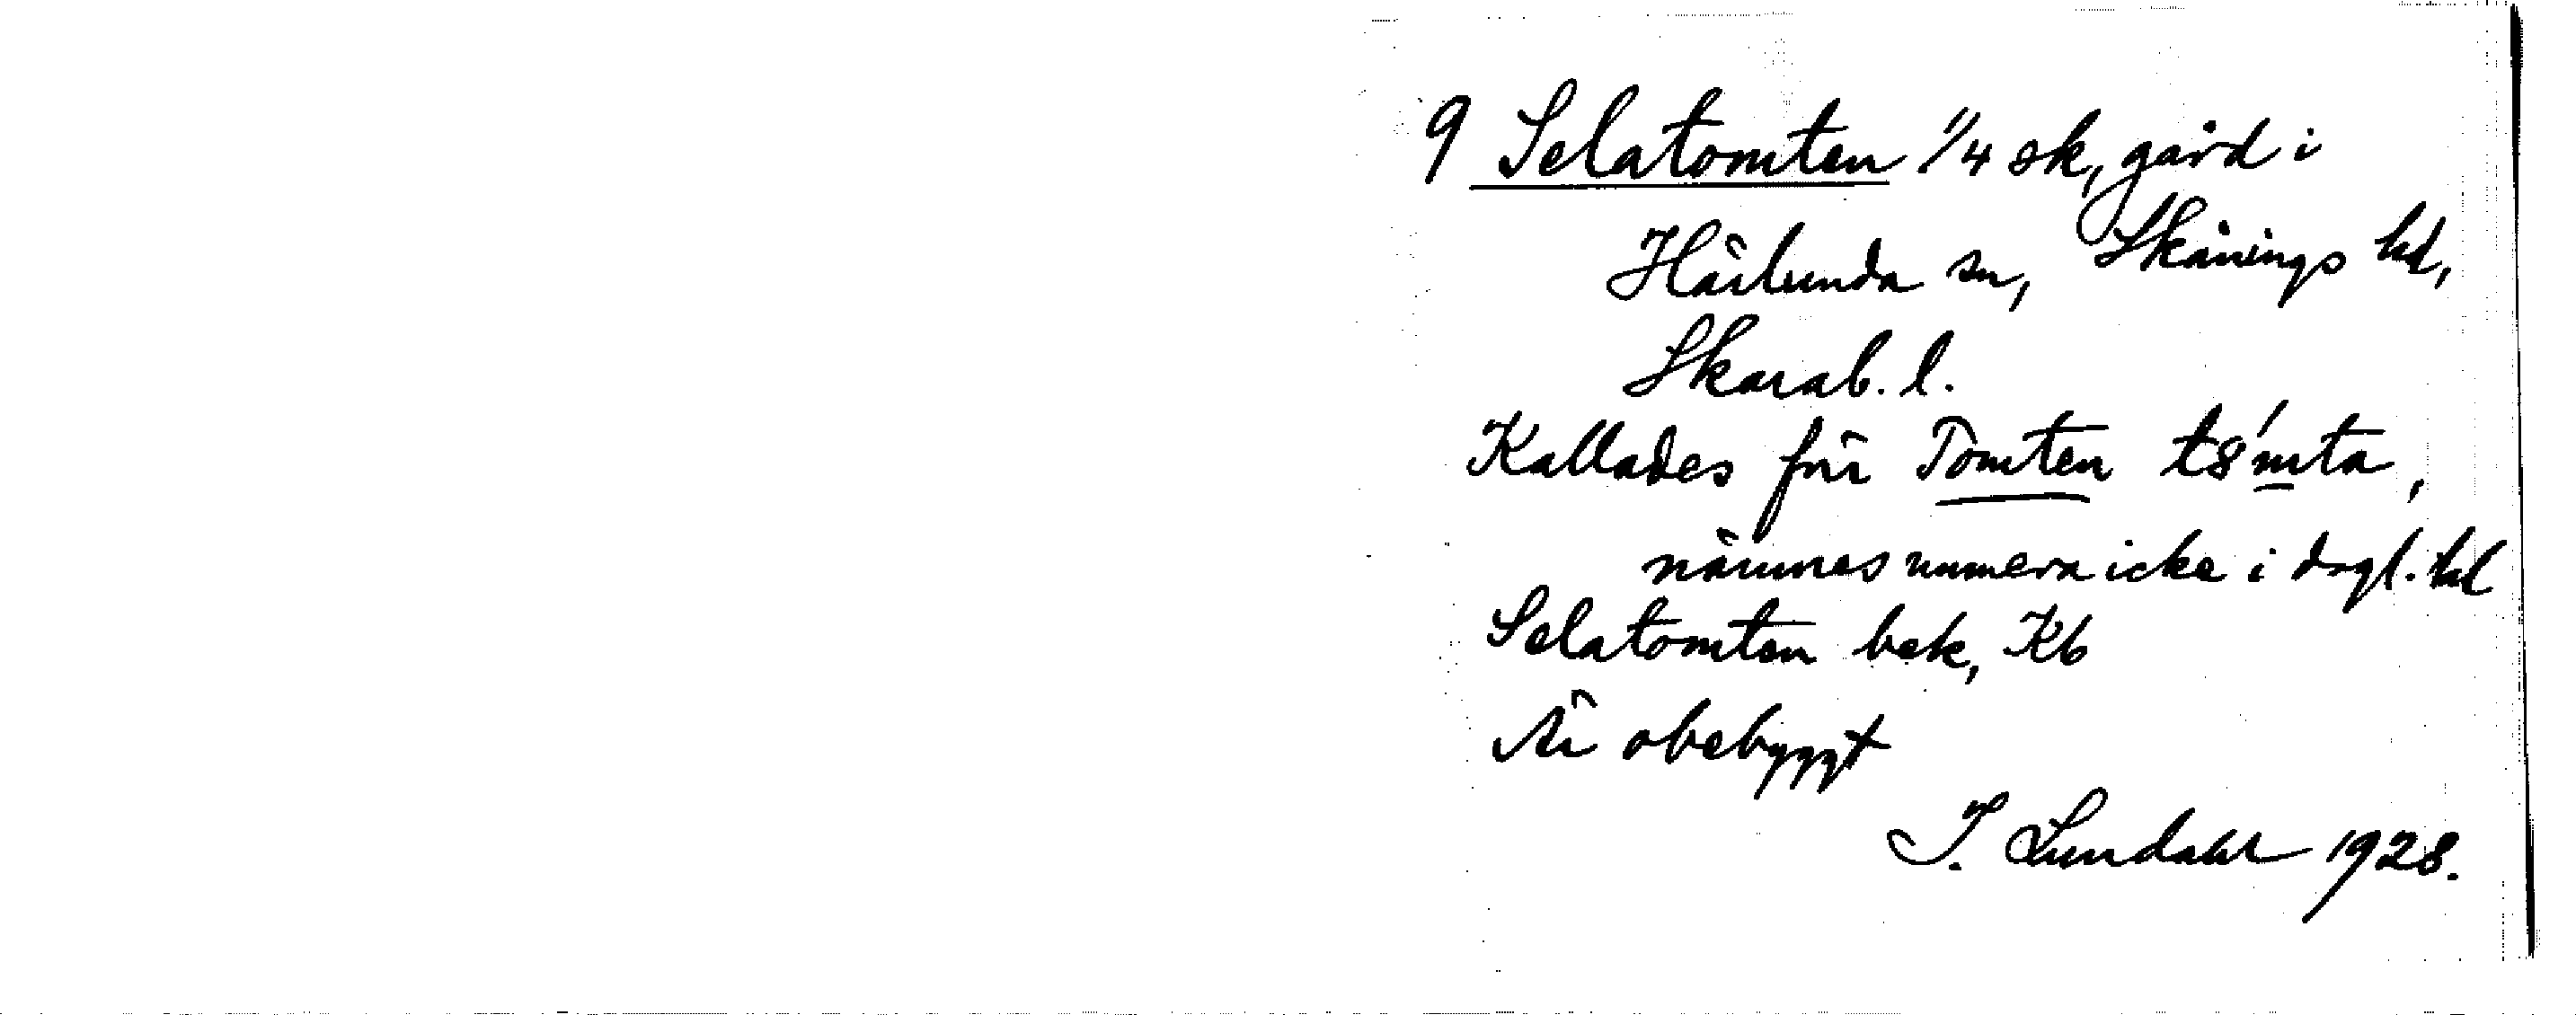 9 Selatomten 1/4 sk, gård i
Härlunda sn, Skånings hd,
Skarab. l.
Kallades för Tomten t8´mta,
nämnes numera icke i dagl. tal
Selatomten bek, Kb
Är obebyggt
I. Lundahl 1928.